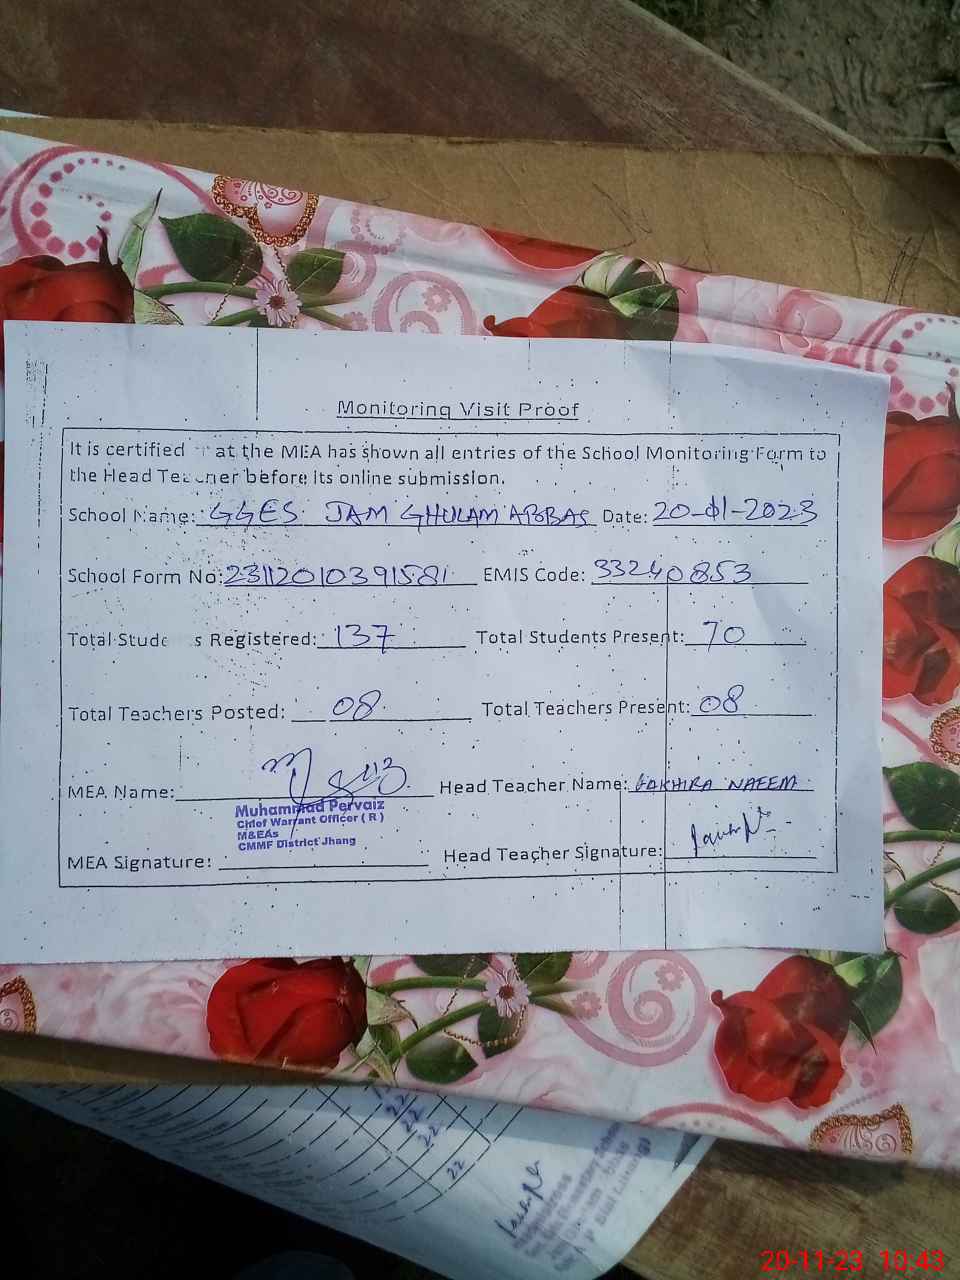 Monitoring Visit Proof
It is certified at the MEA has shown all entries of the School Monitoring Form to
the Head Teacher before its online submission.
School Name: GGES JAM GHULAM ABBAS Date: 20-01-2023
School Form No: 23112010391581 EMIS Code: 33240853
Total Stude s Registered: 137 Total Students Present: 70
Total Teachers Posted: 08 Total Teachers Present: 08
MEA Name: Head Teacher Name: FAKHIRA NAEEM
Muhammad Pervaiz
Chief Warrant Officer ( R )
M&EAs
CMMF District Jhang
MEA Signature: Head Teacher Signature:
22
22
22
22
20-11-23 10:43